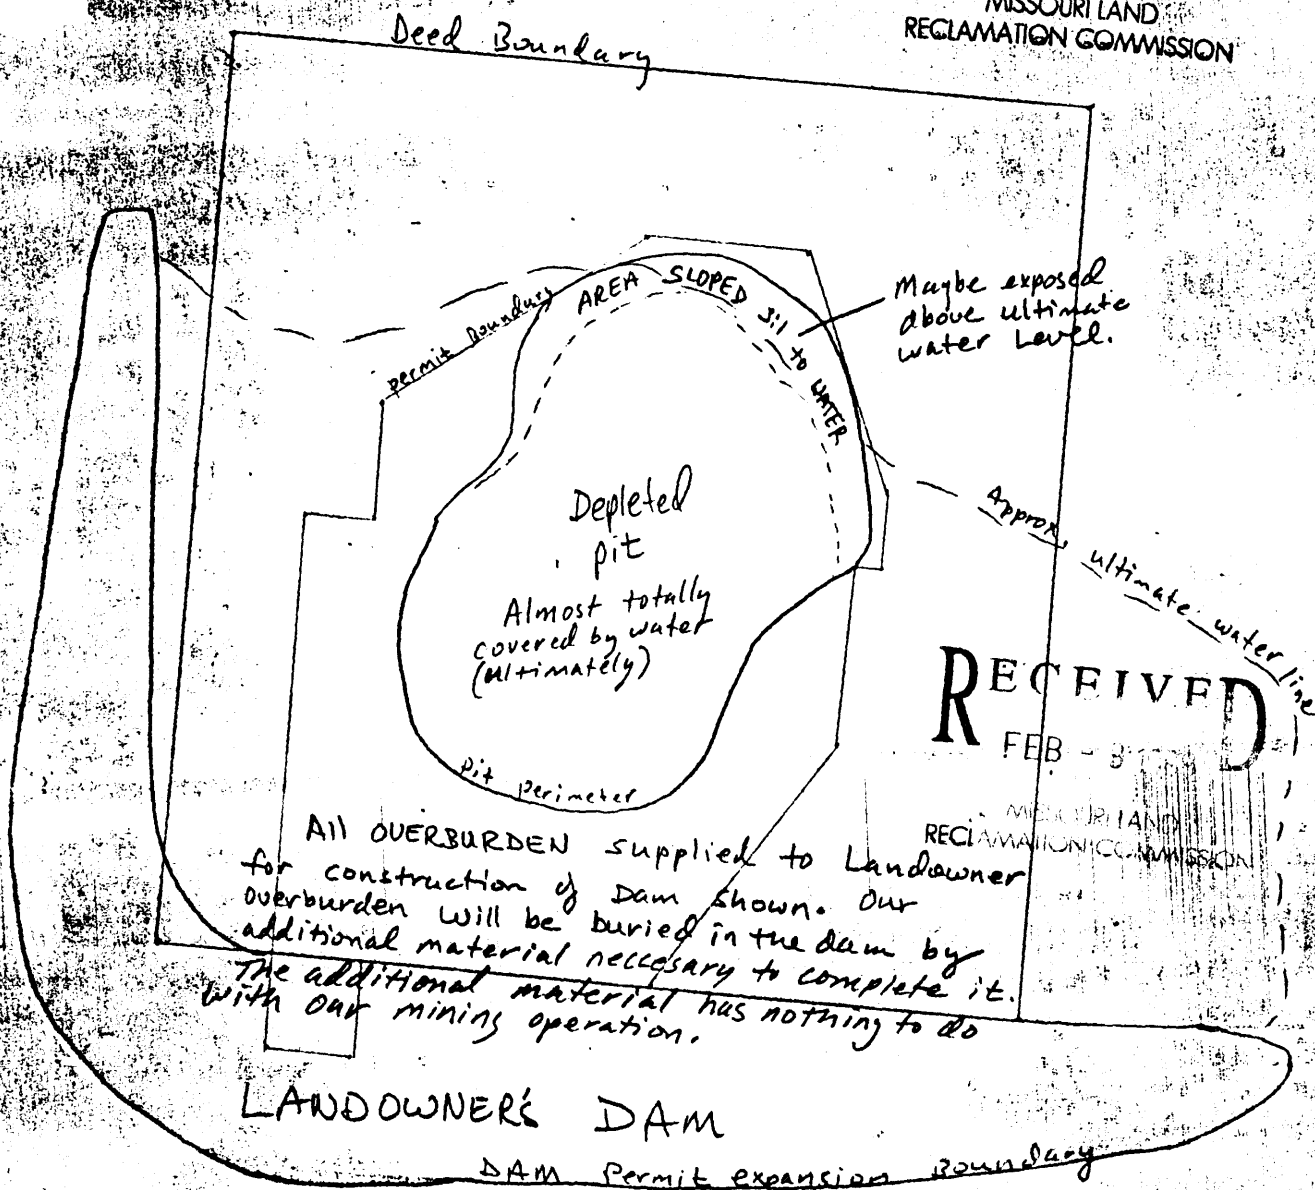 MISSOURI LAND
RECLAMATION COMMISSION
Deed Boundary
permit boundary
AREA SLOPED 3:1 to WATER
Maybe exposed
above ultimate
water Level.
Depleted
pit
Almost totally
covered by water
(ultimately)
Approx. ultimate water line
RECEIVED
FEB - 3
MISSOURI LAND
RECLAMATION COMMISSION
Pit perimeter
All OVERBURDEN supplied to Landowner
for construction of Dam shown. Our
overburden will be buried in the dam by
additional material neccesary to complete it.
The additional material has nothing to do
with our mining operation.
LANDOWNER'S DAM
DAM Permit expansion Boundary